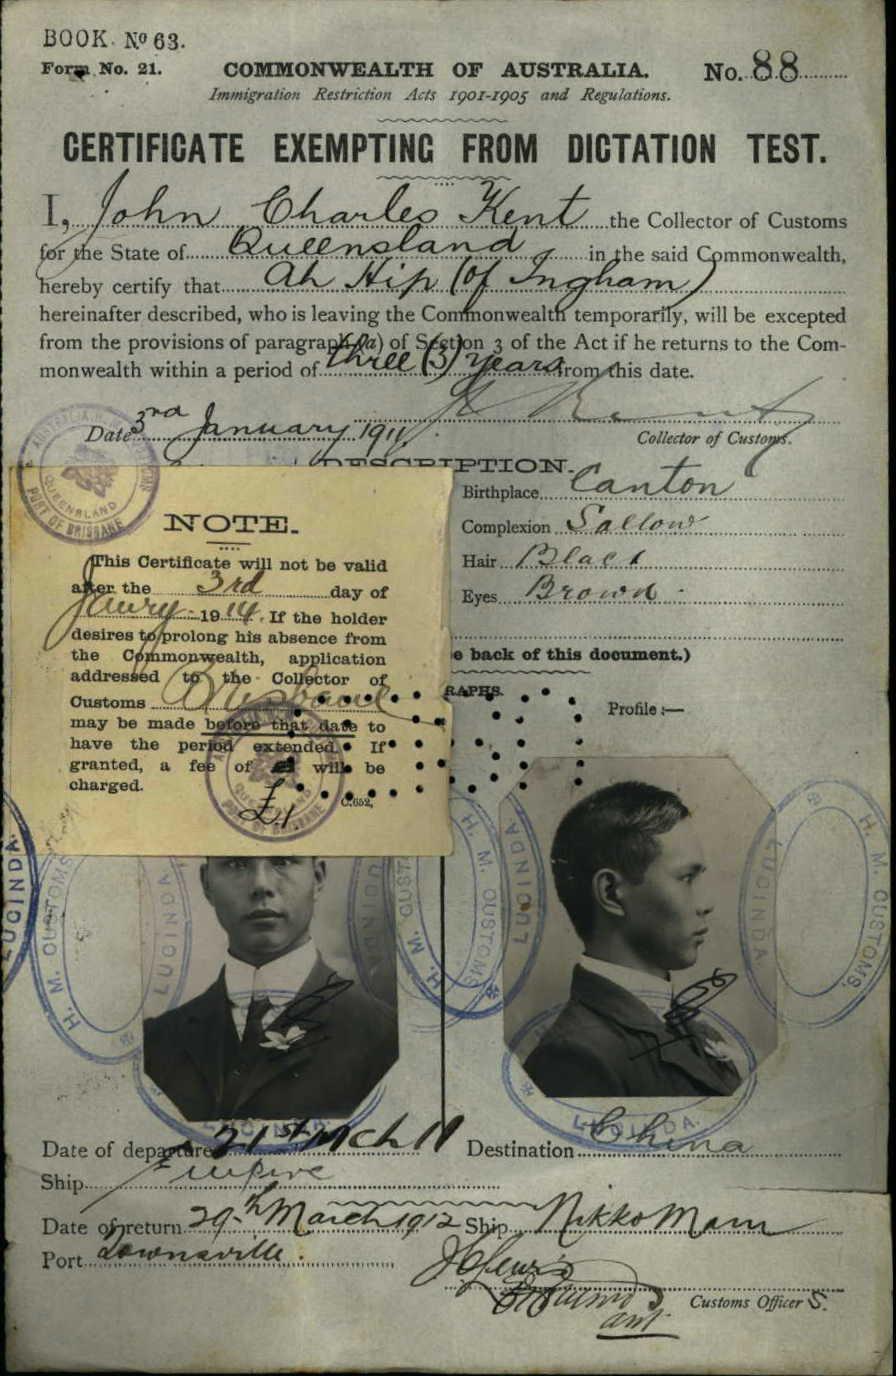 BOOK. No 63.
Form No. 21. COMMONWEALTH OF AUSTRALIA. No. 88
Immigration Restriction Acts 1901-1905 and Regulations.
CERTIFICATE EXEMPTING FROM DICTATION TEST.
I, John Charles Kent the Collector of Customs
for the State of Queensland in the said Commonwealth,
hereby certify that Ah Hip (of Ingham)
hereinafter described, who is leaving the Commonwealth temporarily, will be excepted
from the provisions of paragraph (a) of Section 3 of the Act if he returns to the Com-
monwealth within a period of three (3) years from this date.
Date 3rd January 1911
Collector of Customs.
DESCRIPTION.
Birthplace Canton
Complexion Sallow
Hair Black
Eyes Brown
e back of this document.)
RAPHS.
Profile :—
PORT OF BRISBANE
QUEENSLAND
NOTE.
This Certificate will not be valid
after the 3rd day of
1914. If the holder
desires to prolong his absence from
the Commonwealth, application
addressed to the Collector of
Customs Brisbane
may be made before that date to
have the period extended. If
granted, a fee of will be
charged.
£1.
C.652.
H. M. CUSTOMS.
LUCINDA.
H. M. CUSTOMS
LUCINDA
LUCINDA
H. M. CUSTOMS
H. M. CUSTOMS
LUCINDA.
LUCINDA
H. M. CUSTOMS.
LUCINDA.
Date of departure 21st Mch 11 Destination China
Ship Empire
Date of return 29th March 1912 Ship Nikko Maru
Port Townsville.
Customs Officer S.